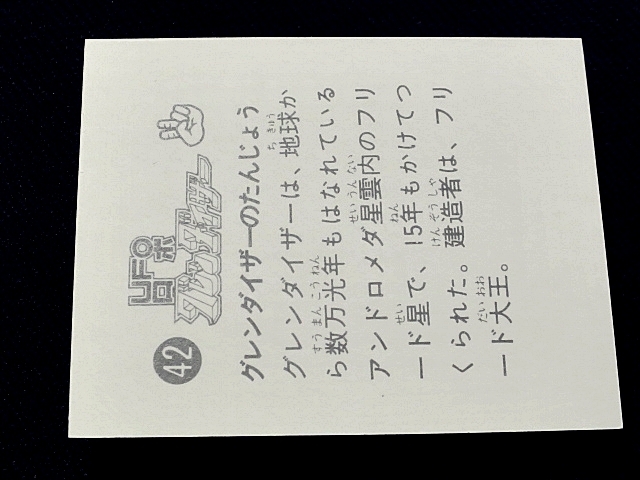 42
UFOロボ
グレンダイザー
グレンダイザーのたんじょう
グレンダイザーは、地球か
ら数万光年もはなれている
アンドロメダ星雲内のフリ
ード星で、15年もかけてつ
くられた。建造者は、フリ
ード大王。